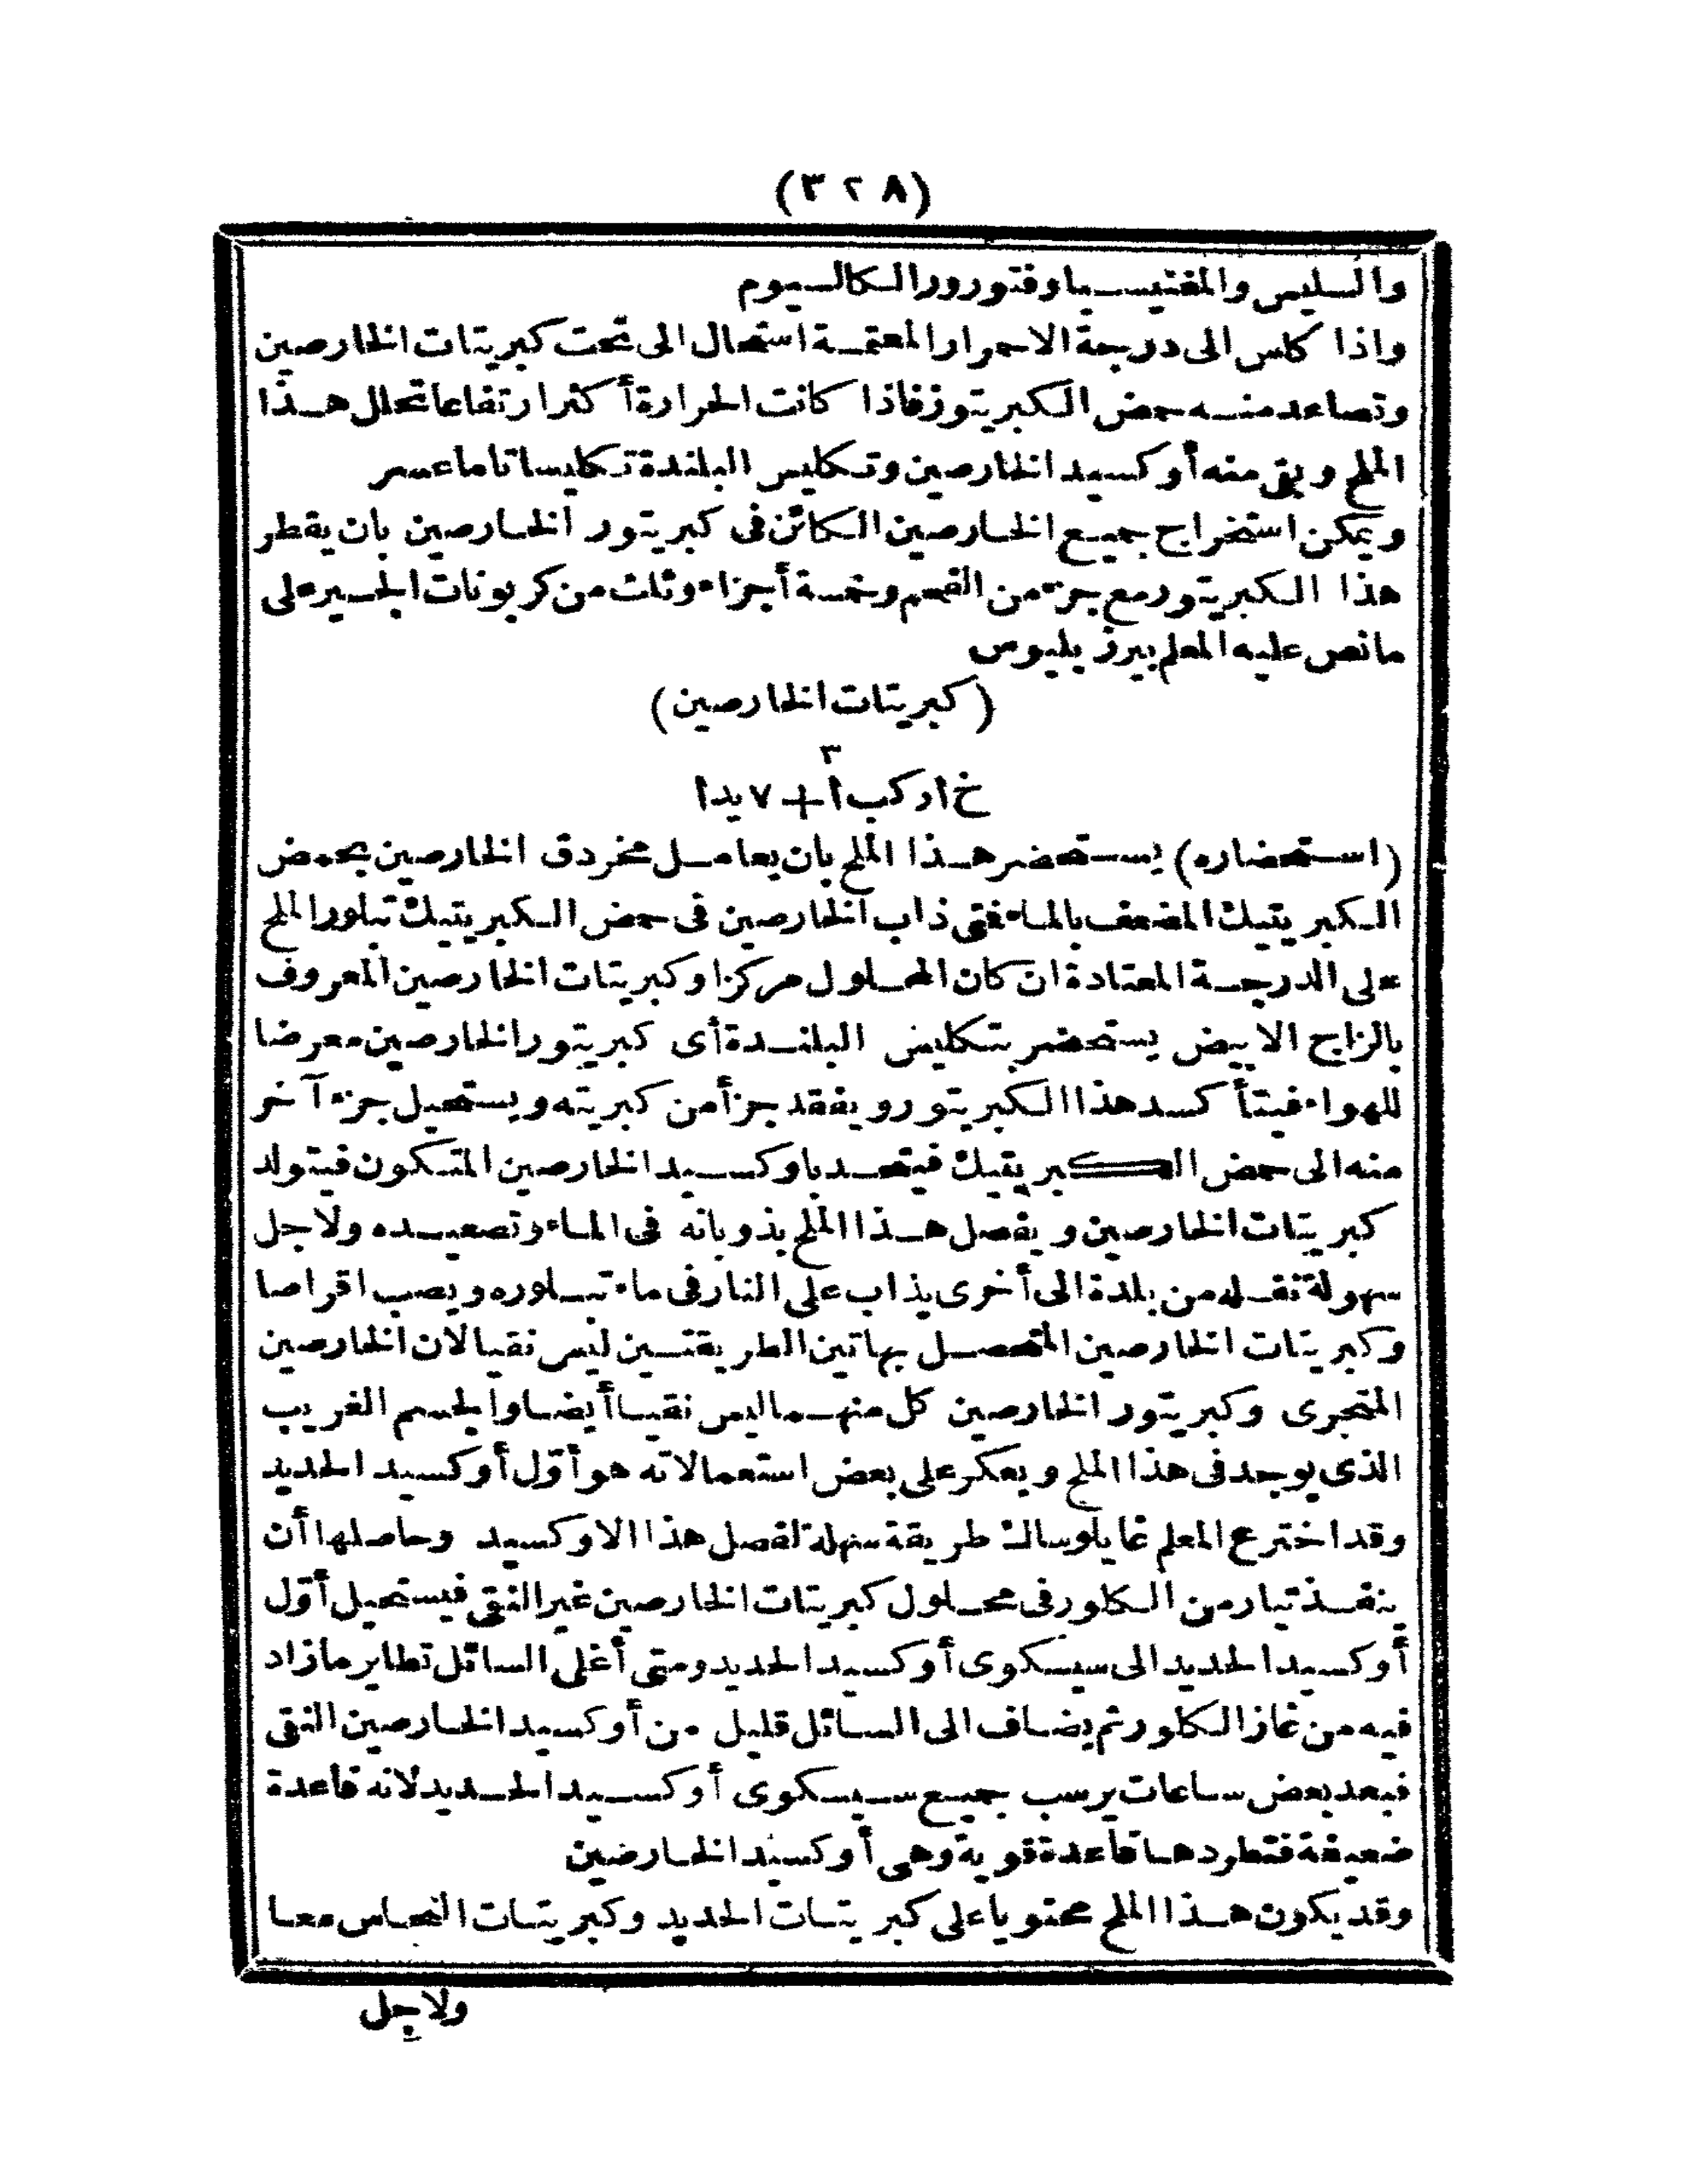 (٣٢٨)
والسليس والمغنيسيا وفتورور الكالسيوم
واذا كلس الى درجة الاحمرار المعتمة استحال الى تحت كبريتات الخارصين
وتصاعد منه حمض الكبريتوز فاذا كانت الحرارة أكثر ارتفاعا تحلل هذا
الملح ويبقى منه أوكسيد الخارصين وتكليس البلندة تكليسا تاما عسر
ويمكن استخراج جميع الخارصين الكائن فى كبريتور الخارصين بان يقطر
هذا الكبريتور مع جزء من الفحم وخمسة أجزاء وثلث من كربونات الجير على
ما نص عليه المعلم بيرزيليوس
(كبريتات الخارصين)
٣
خ ا ر كب ا + ٧ يد ا
(استحضاره) يستحضر هذا الملح بان يعامل مخردق الخارصين بحمض
الكبريتيك المضعف بالماء فتى ذاب الخارصين فى حمض الكبريتيك تبلور الملح
على الدرجة المعتادة ان كان المحلول مركزا وكبريتات الخارصين المعروف
بالزاج الابيض يستحضر بتكليس البلندة أى كبريتور الخارصين معرضا
للهواء فيتأكسد هذا الكبريتور ويفقد جزأ من كبريته ويستحيل جزء آخر
منه الى حمض الكبريتيك فيتحد باوكسيد الخارصين المتكون فيتولد
كبريتات الخارصين ويفصل هذا الملح بذوبانه فى الماء وتصعيده ولاجل
سهولة نقله من بلدة الى أخرى يذاب على النار فى ماء تبلوره ويصب اقراصا
وكبريتات الخارصين المتحصل بهاتين الطريقتين ليس نقيا لان الخارصين
المتجرى وكبريتور الخارصين كل منهما ليس نقيا أيضا والجسم الغريب
الذى يوجد فى هذا الملح ويعكر على بعض استعمالاته هو أول أوكسيد الحديد
وقد اخترع المعلم غايلوساك طريقة سهلة لفصل هذا الاوكسيد وحاصلها أن
ينفذ تيار من الكلور فى محلول كبريتات الخارصين غير النقى فيستحيل أول
أوكسيد الحديد الى سيسكوى أوكسيد الحديد ومتى أغلى السائل تطاير ما زاد
فيه من غاز الكلور ثم يضاف الى السائل قليل من أوكسيد الخارصين النقى
فبعد بعض ساعات يرسب جميع سيسكوى أوكسيد الحديد لانه قاعدة
ضعيفة فتطردها قاعدة قوية وهى أوكسيد الخارصين
وقد يكون هذا الملح محتويا على كبريتات الحديد وكبريتات النحاس معا
ولاجل